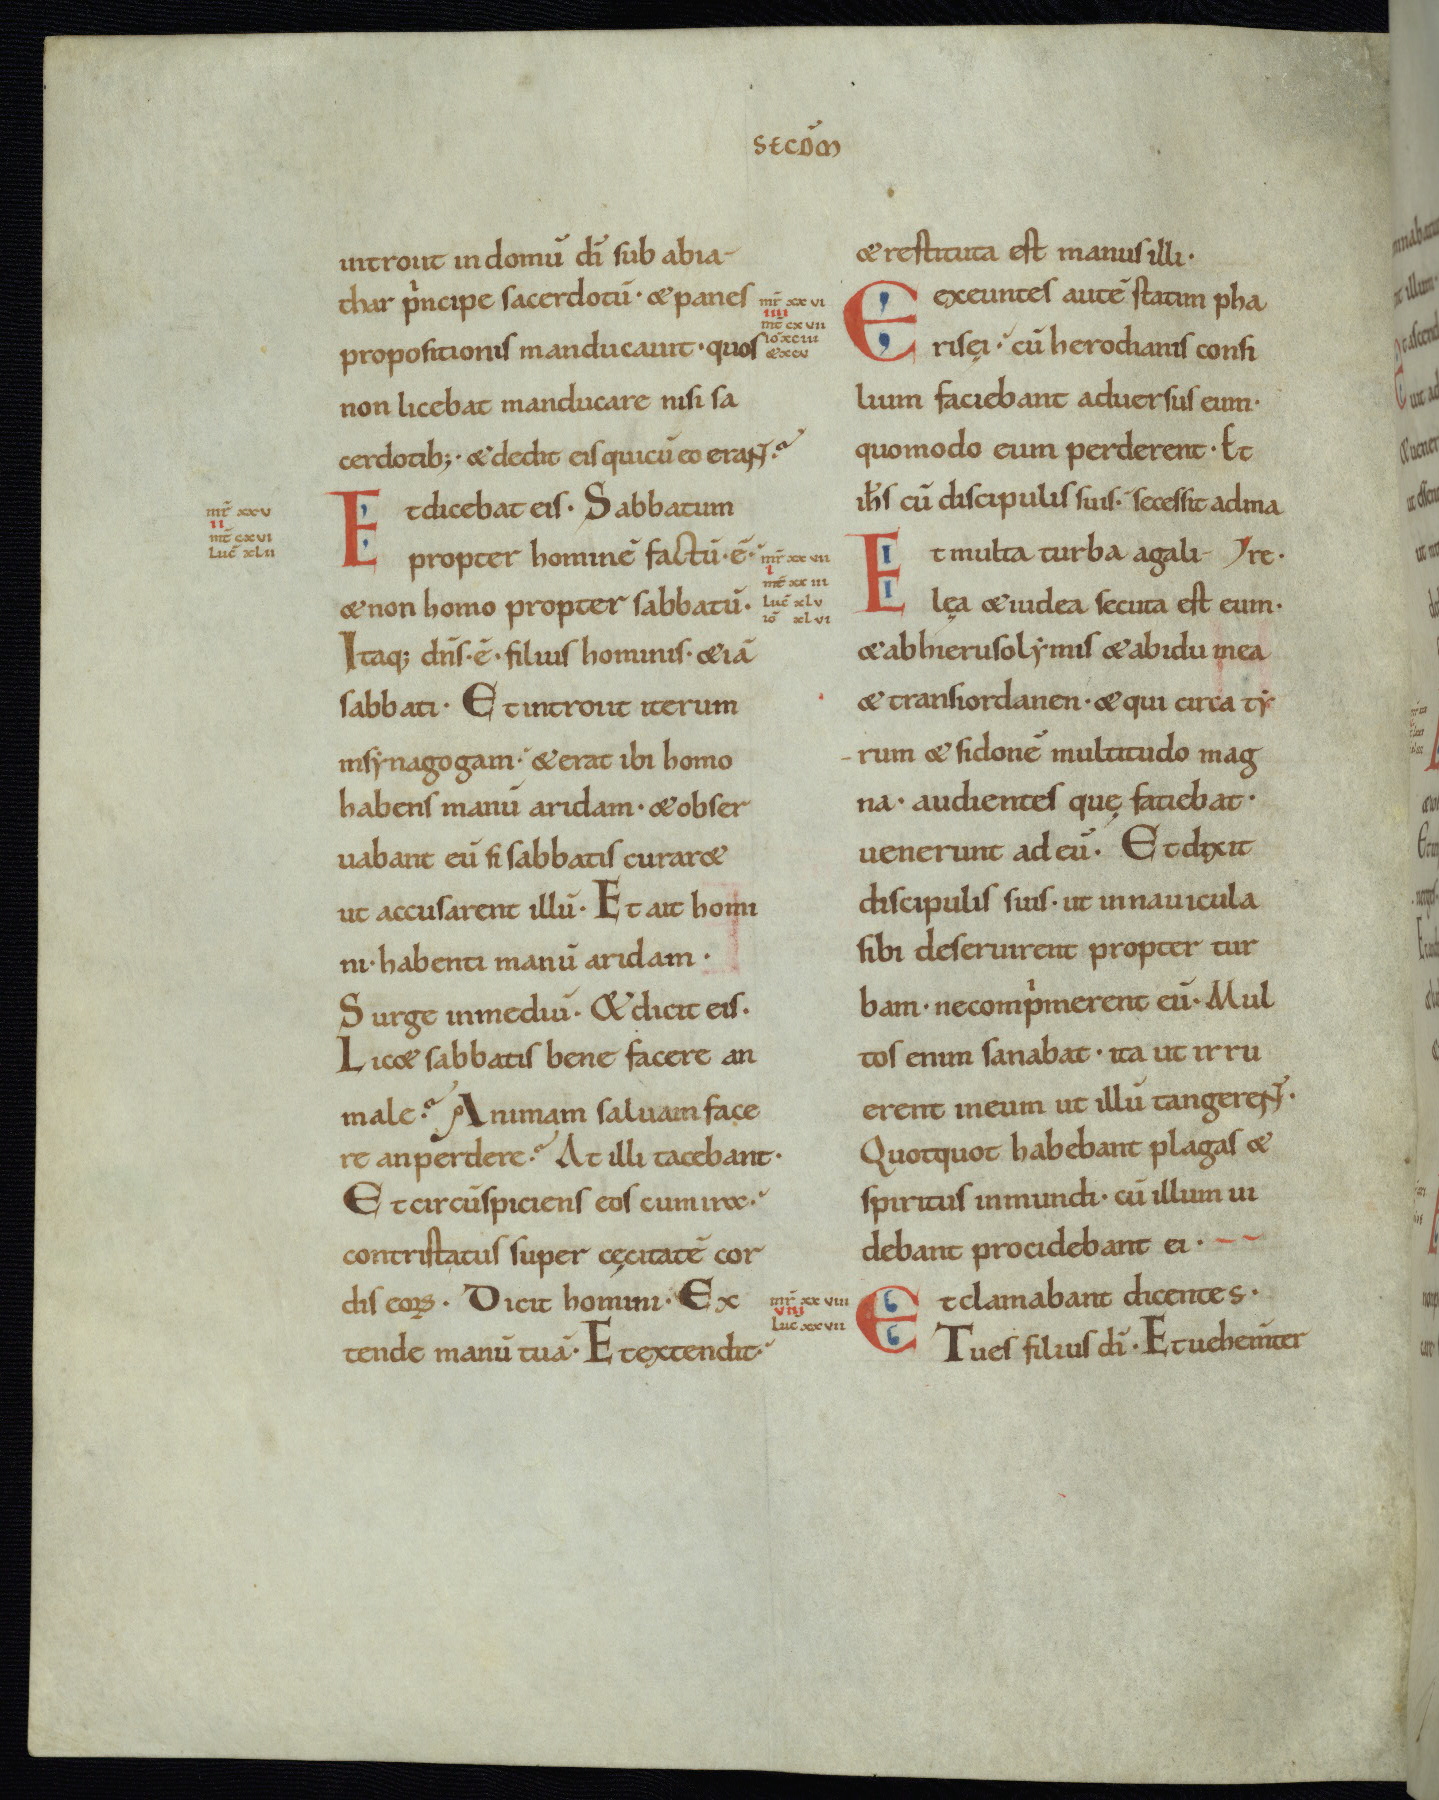 SECDM̄
introiit in domū dī sub abia-
thar pͥncipe sacerdotū· & panes
propositionis manducauit· quos
non licebat manducare nisi sa
cerdotib;· & dedit eis qui cū eo erant·
mr̄ xxv
ii
mt̄ cxvi
Luc̄ xlii
Et dicebat eis· Sabbatum
propter hominē factū·ē·
& non homo propter sabbatū·
Itaq; dn̄s·ē· filius hominis· &iā
sabbati· Et introiit iterum
insẏnagogam· & erat ibi homo
habens manū aridam· & obser
uabant eū si sabbatis curar&
ut accusarent illū· Et ait homi
ni· habenti manū aridam·
Surge in mediū· & dicit eis·
Lic& sabbatis bene facere an
male· Animam saluam face
re an perdere· At illi tacebant·
Et circūspiciens eos cum ira·
contristatus super cęcitatē cor
dis eoꝝ· Dicit homini· Ex
tende manū tuā· Et extendit·
& restituta est manus illi·
mr̄ xxvi
iiii
mt̄ cxvii
iō xciii
& xcv
Exeuntes autē statim pha
risęi· cū herodianis consi
lium faciebant aduersus eum·
quomodo eum perderent· Et
ih̄s cū discipulis suis· secessit ad ma
mr̄ xxvii
i
mt̄ xxiii
Luc̄ xlv
iō xlvi
Et multa turba a gali- re·
lęa & iudea secuta est eum·
& ab hierusolẏmis & ab idumea
& transiordanen· & qui circa tẏ
rum & sidonē multitudo mag
na· audientes quę faciebat·
uenerunt ad eū· Et dixit
discipulis suis· ut in nauicula
sibi deseruirent propter tur
bam· ne compͥmerent eū· Mul
tos enim sanabat· ita ut irru
erent in eum ut illū tangerent·
Quotquot habebant plagas &
spiritus inmundi· cū illum ui
debant procidebant ei·
mr̄ xxviii
viii
Luc̄ xxvii
Et clamabant dicentes·
Tu es filius dī· Et uehem̄ter